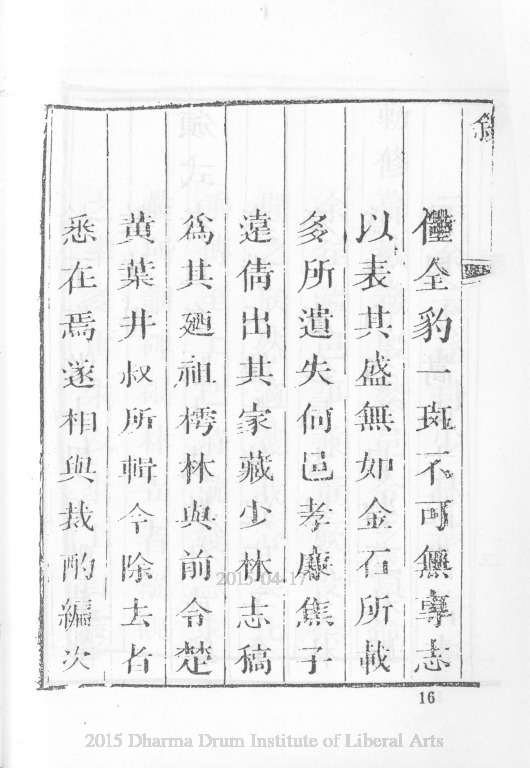 敘
僅全豹一斑不可無專志
以表其盛無如金石所載
多所遺失何邑孝廉焦子
遠儔出其家藏少林志稿
為其廼祖樗林與前令楚
黃葉井叔所輯今除去者
悉在焉遂相與裁酌編次
16
2015-04-17
2015 Dharma Drum Institute of Liberal Arts